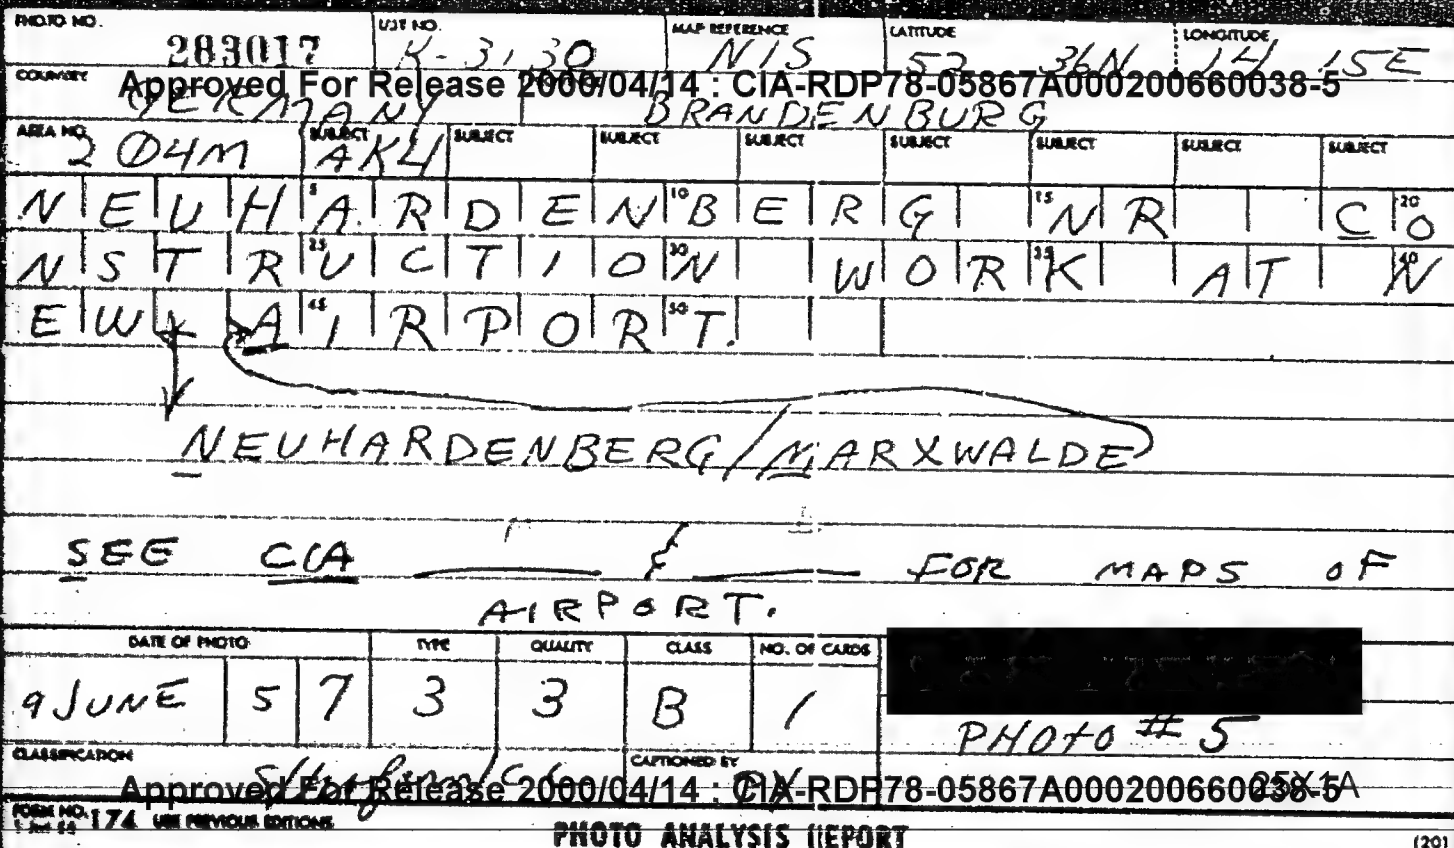 PHOTO NO. LIST NO. MAP REFERENCE LATITUDE LONGITUDE
283017 K-3130 NIS 52 36N 14 15E
Approved For Release 2000/04/14 : CIA-RDP78-05867A000200660038-5
COUNTRY GERMANY BRANDENBURG
AREA NO. SUBJECT SUBJECT SUBJECT SUBJECT SUBJECT SUBJECT SUBJECT SUBJECT
204M AK4
NEUHARDENBERG NR CO
NSTRUCTION WORK AT N
EW AIRPORT.
NEUHARDENBERG/MARXWALDE
SEE CIA & FOR MAPS OF
AIRPORT.
DATE OF PHOTO TYPE QUALITY CLASS NO. OF CARDS
9 JUNE 57 3 3 B 1
PHOTO # 5
CLASSIFICATION CAPTIONED BY
25X1A
Approved For Release 2000/04/14 : CIA-RDP78-05867A000200660038-5
FORM NO. 174 USE PREVIOUS EDITIONS
PHOTO ANALYSIS REPORT
(20)